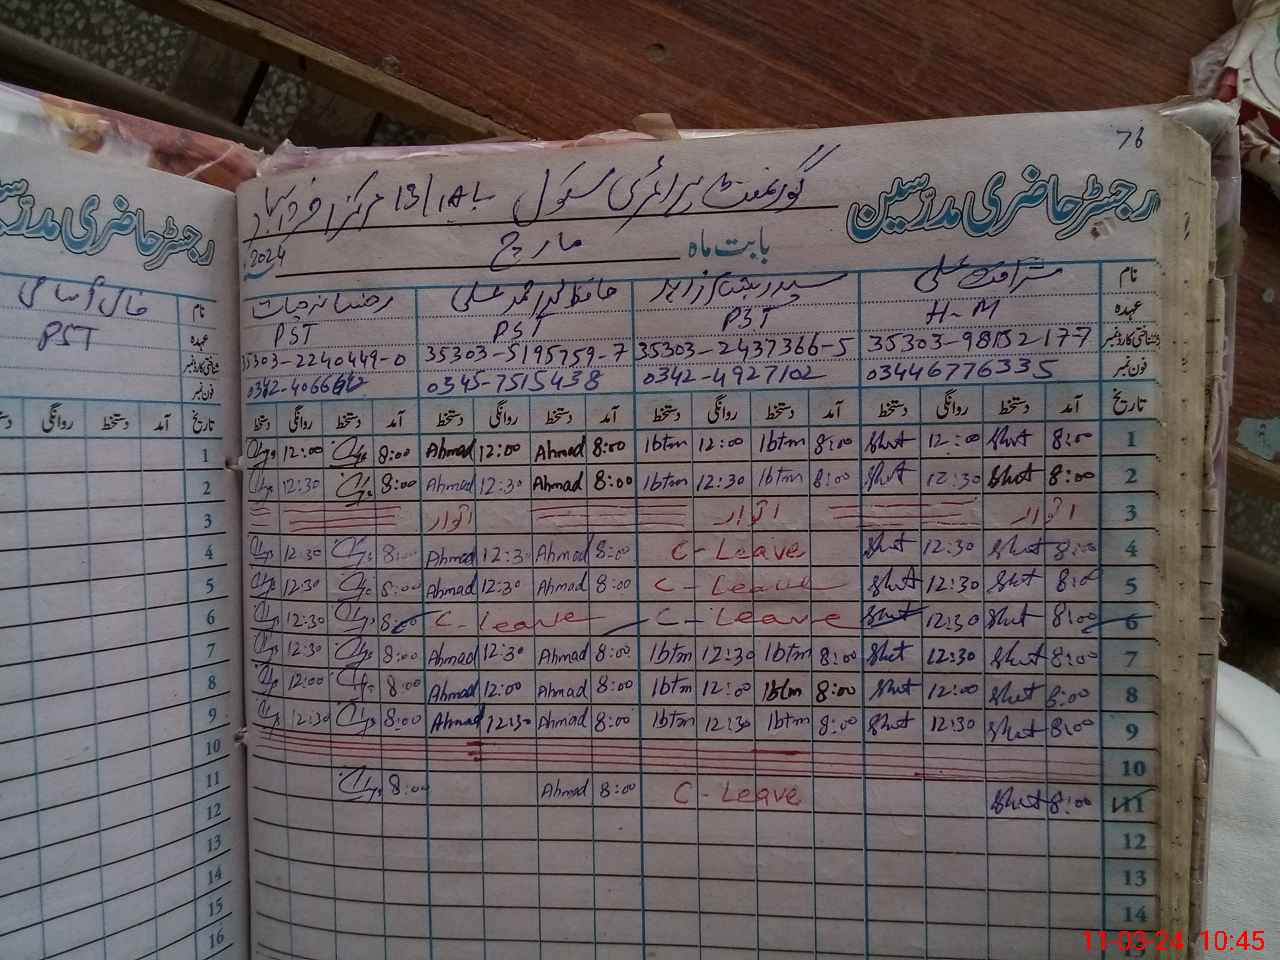 76
رجسٹر حاضری مدرسین
گورنمنٹ پرائمری سکول 13/1AL مرکز اختر آباد
بابت ماہ مارچ 2024
نام شرافت علی
عہدہ H-M PST PST PST
شناختی کارڈ نمبر 35303-9815217-7 35303-2437366-5 35303-5195759-7 35303-2240449-0
فون نمبر 03446776335 0342-4927102 0345-7515438
تاریخ آمد دستخط روانگی دستخط آمد دستخط روانگی دستخط آمد دستخط روانگی دستخط آمد دستخط روانگی دستخط
1 8:00 Shut 12:00 Shut 8:00 Ibtm 12:00 Ibtm 8:00 Ahmad 12:00 Ahmad 8:00 12:00
2 8:00 Shut 12:30 Shut 8:00 Ibtm 12:30 Ibtm 8:00 Ahmad 12:30 Ahmad 8:00 12:30
3 اتوار اتوار اتوار
4 8:00 Shut 12:30 Shut C-Leave 8:00 Ahmad 12:30 Ahmad 8:00 12:30
5 8:00 Shut 12:30 Shut C-Leave 8:00 Ahmad 12:30 Ahmad 8:00 12:30
6 8:00 Shut 12:30 Shut C-Leave C-Leave 8:00 12:30
7 8:00 Shut 12:30 Shut 8:00 Ibtm 12:30 Ibtm 8:00 Ahmad 12:30 Ahmad 8:00 12:30
8 8:00 Shut 12:00 Shut 8:00 Ibtm 12:00 Ibtm 8:00 Ahmad 12:00 Ahmad 8:00 12:00
9 8:00 Shut 12:30 Shut 8:00 Ibtm 12:30 Ibtm 8:00 Ahmad 12:30 Ahmad 8:00 12:30
10
11 8:00 Shut C-Leave 8:00 Ahmad 8:00
12
13
14
15
رجسٹر حاضری مدرسین
نام خالی آسامی
عہدہ PST
شناختی کارڈ نمبر
فون نمبر
تاریخ آمد دستخط روانگی دستخط
1
2
3
4
5
6
7
8
9
10
11
12
13
14
15
16
11-03-24 10:45